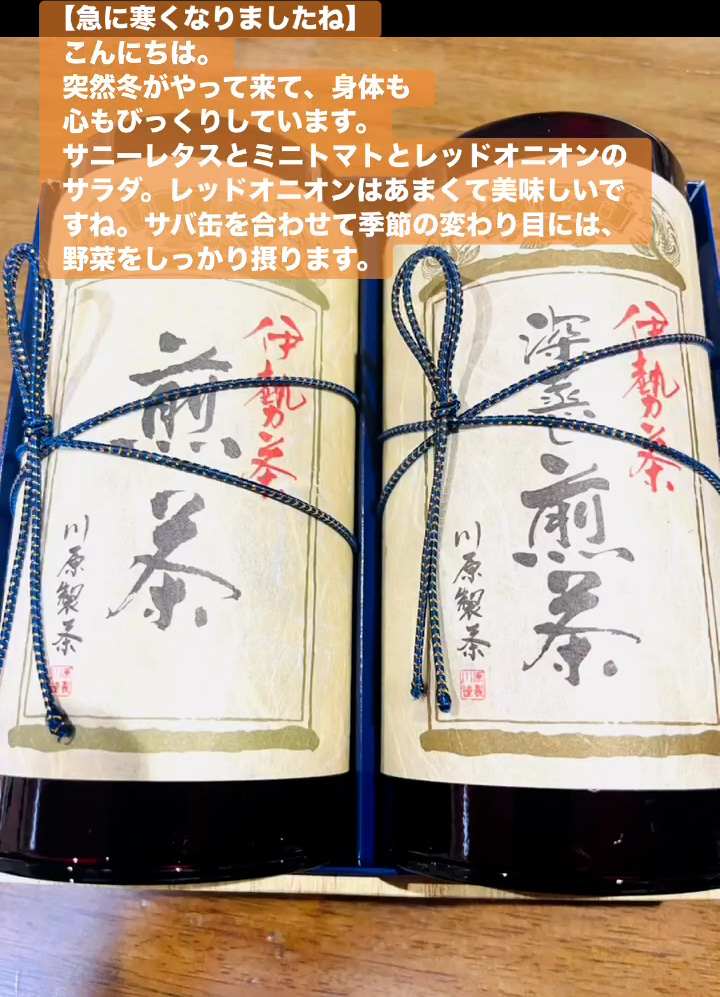 【急に寒くなりましたね】
こんにちは。
突然冬がやって来て、身体も
心もびっくりしています。
サニーレタスとミニトマトとレッドオニオンの
サラダ。レッドオニオンはあまくて美味しいで
すね。サバ缶を合わせて季節の変わり目には、
野菜をしっかり摂ります。
伊勢茶
煎茶
川原製茶
伊勢茶
深蒸し
煎茶
川原製茶